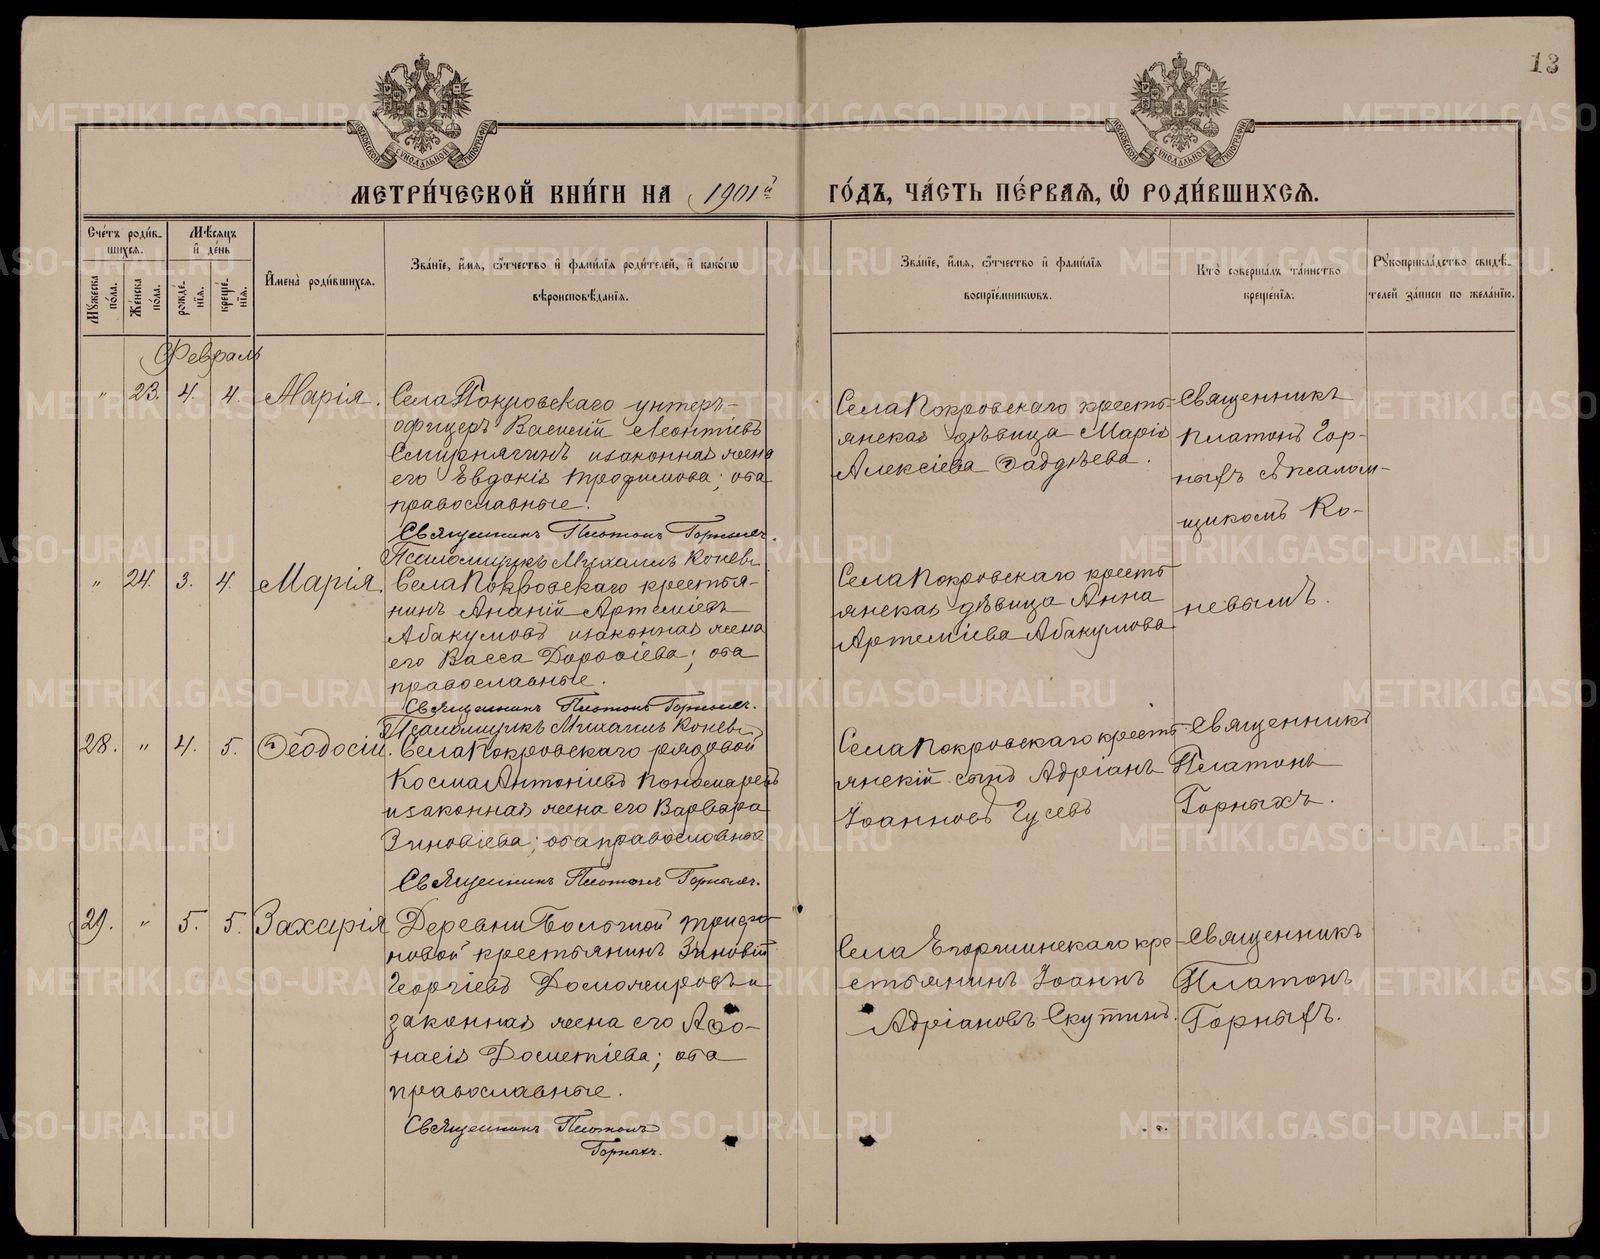 13
МОСКОВСКОЙ СѴНОДАЛЬНОЙ ТИПОГРАФІИ
МОСКОВСКОЙ СѴНОДАЛЬНОЙ ТИПОГРАФІИ
МЕТРИ́ЧЕСКОЙ КНИ́ГИ НА 1901й
ГО́ДЪ, ЧА́СТЬ ПЕ́РВАѦ, Ѿ РОДИ́ВШИХСѦ.
Сче́тъ роди́в-
шихсѧ.
Мѣ́сѧцъ
и҆ де́нь
Мꙋ́жеска
по́ла.
Же́нска
по́ла.
рожде́-
нїѧ.
креще́-
нїѧ.
И҆мена̀ роди́вшихсѧ.
Зва́нїе, и҆́мѧ, ѻ҆́тчество и҆ фами́лїѧ роди́телей, и҆ како́гѡ
вѣроисповѣ́данїѧ.
Зва́нїе, и҆́мѧ, ѻ҆́тчество и҆ фами́лїѧ
воспрїе́мникѡвъ.
Кто̀ соверша́лъ та́инство
креще́нїѧ.
Рꙋкоприкла́дство свидѣ́-
телей за́писи по жела́нїю.
Февраль
" 23. 4. 4. Марія.
Села Покровскаго унтеръ-
офицеръ Василій Леонтіевъ
Смирнягинъ и законная жена
его Евдокія Трофимова; оба
православные.
Священникъ Платонъ Горныхъ.
Псаломщикъ Михаилъ Коневъ
Села Покровскаго кресть-
янская дѣвица Марія
Алексіева Фаддѣева.
Священникъ
Платонъ Гор-
ныхъ съ псалом-
щикомъ Ко-
невымъ.
" 24. 3. 4. Марія.
Села Покровскаго крестья-
нинъ Ананій Артеміевъ
Абакумовъ и законная жена
его Васса Дороѳіева; оба
православные.
Священникъ Платонъ Горныхъ.
Псаломщикъ Михаилъ Коневъ
Села Покровскаго кресть-
янская дѣвица Анна
Артеміева Абакумова
28. " 4. 5. Ѳеодосій.
Села Покровскаго рядовой
Косма Антоніевъ Пономаревъ
и законная жена его Варвара
Зиновіева; оба православные
Священникъ Платонъ Горныхъ.
Села Покровскаго кресть-
янскій сынъ Адріанъ
Іоанновъ Гусевъ
Священникъ
Платонъ
Горныхъ.
29. " 5. 5. Захарія
Деревни Болотной Трифо-
новой крестьянинъ Зиновій
Георгіевъ Доможировъ и
законная жена его Аѳо-
насія Дометіева; оба
православные.
Священникъ Платонъ
Горныхъ.
Села Егоршинскаго кре-
стьянинъ Іоаннъ
Адріановъ Скутинъ.
Священникъ
Платонъ
Горныхъ.
METRIKI.GASO-URAL.RU